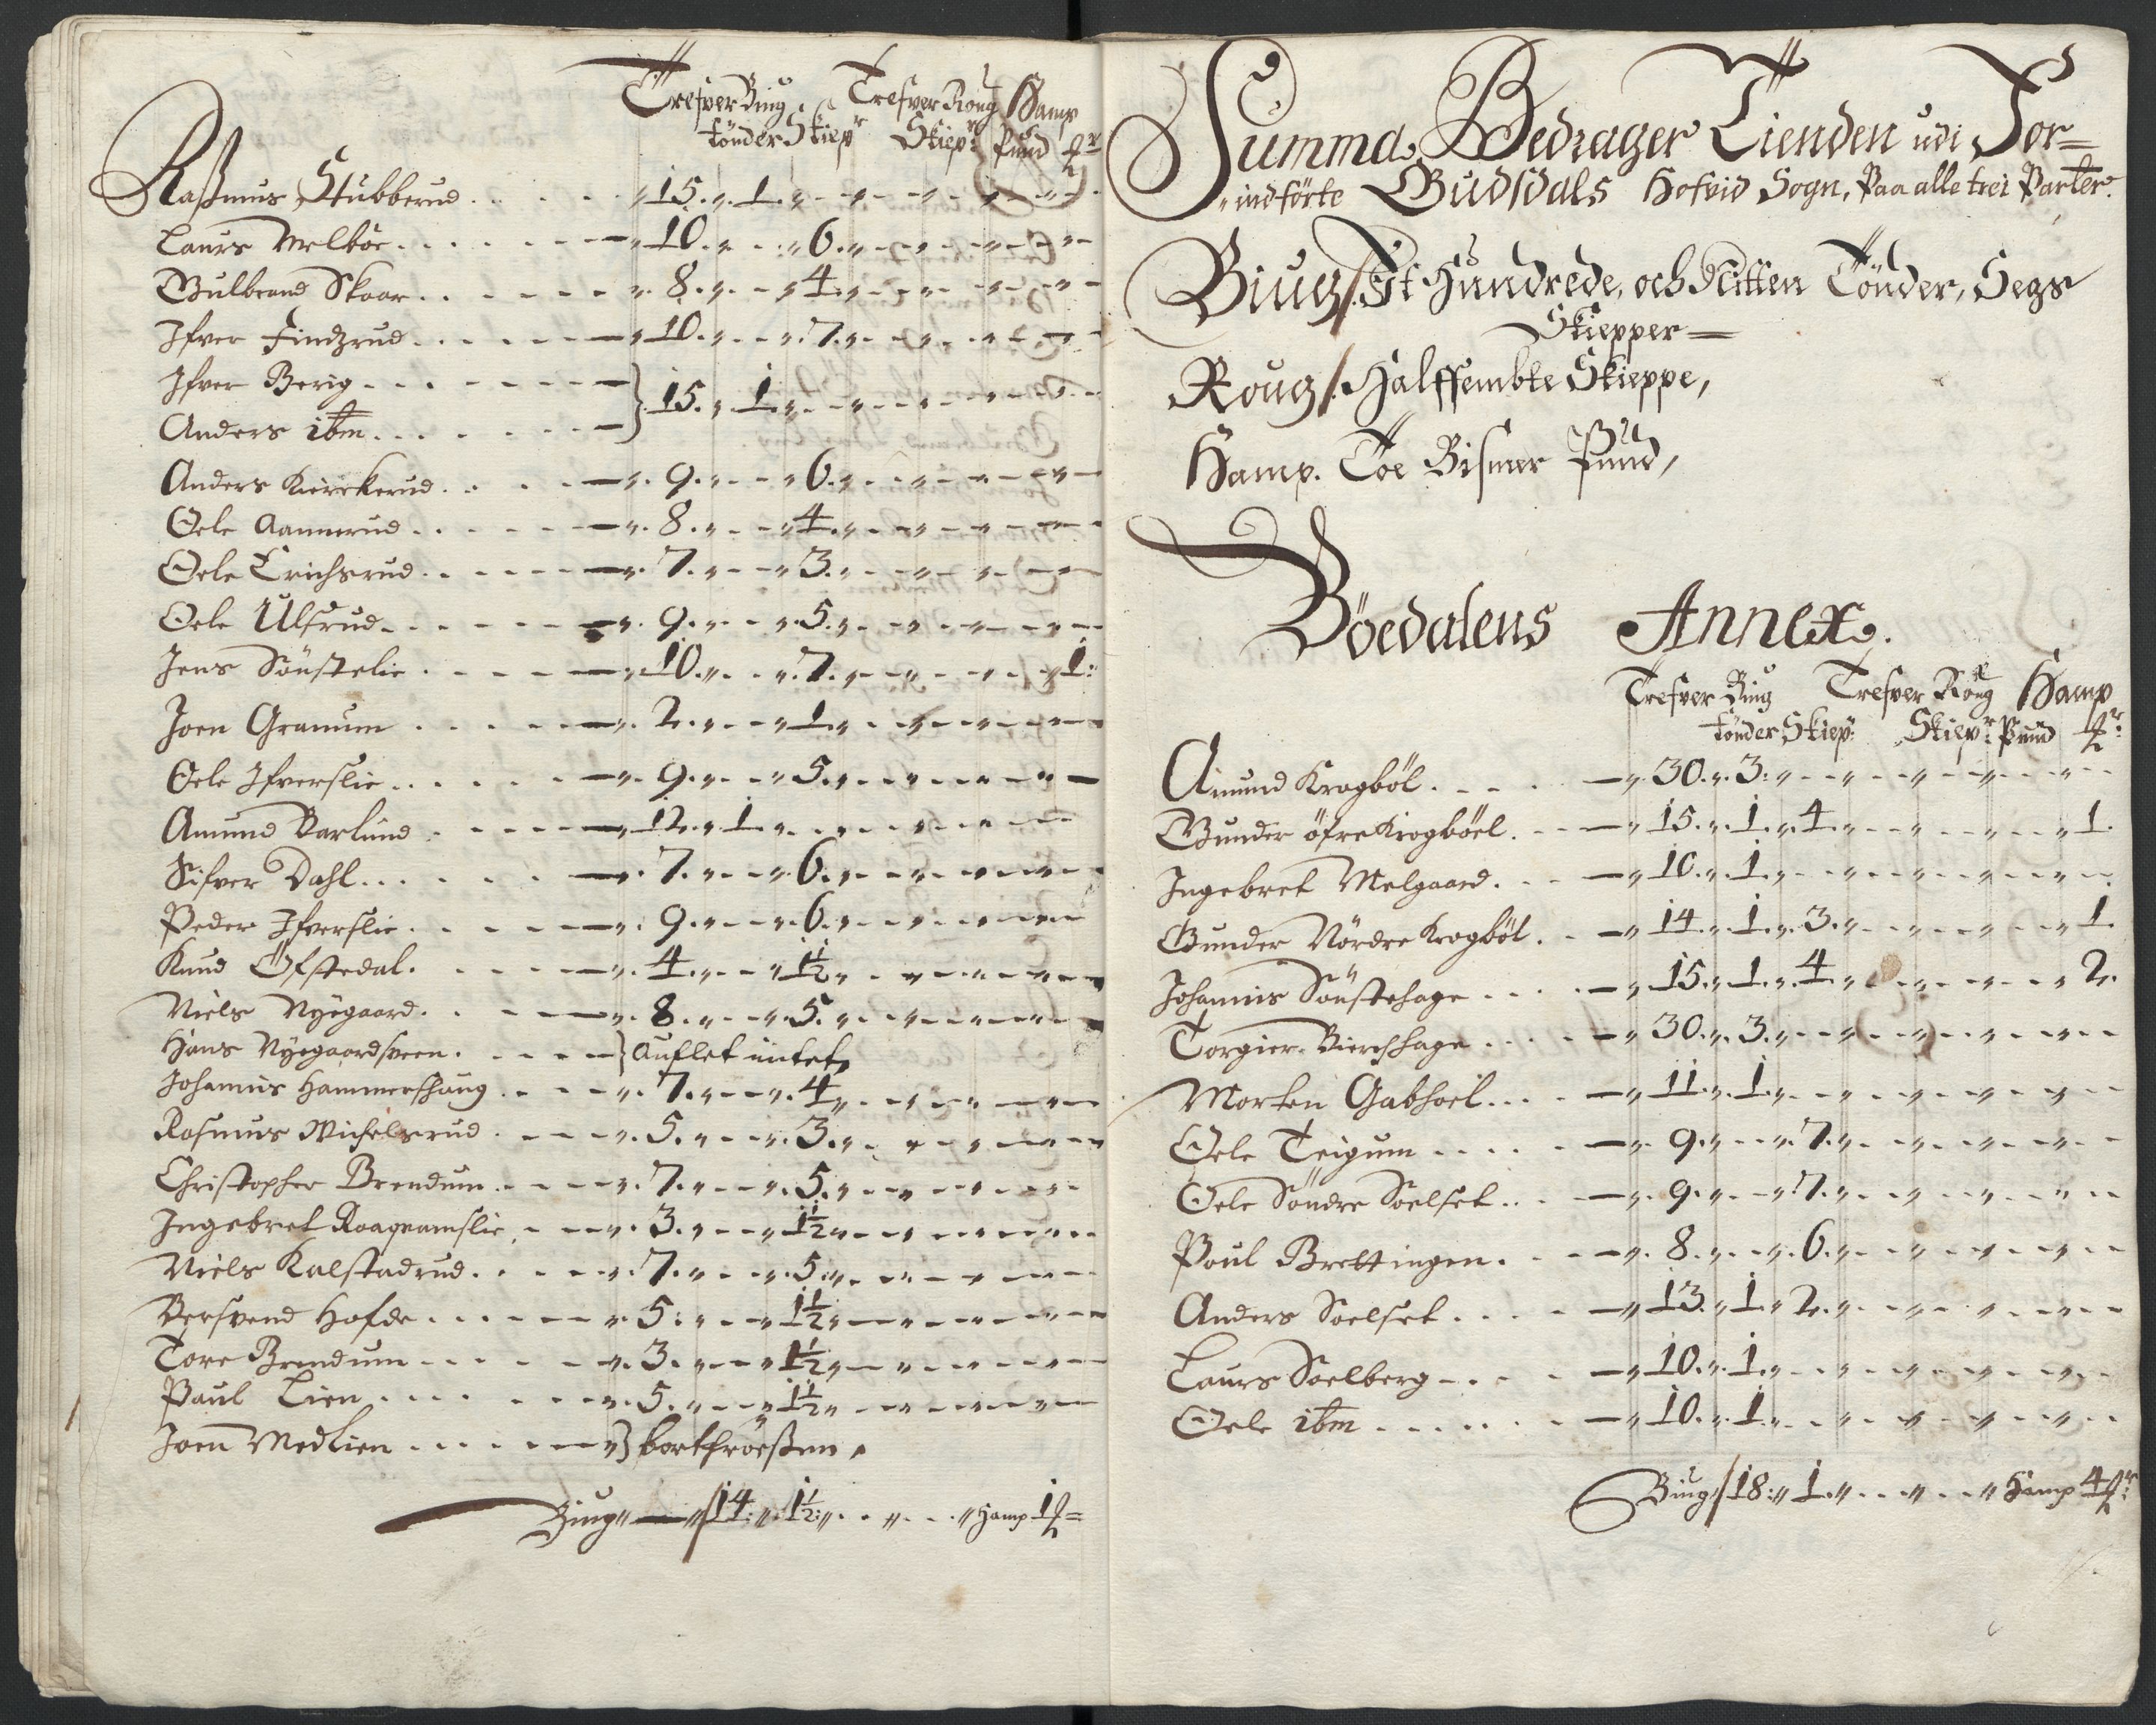 Trefver Biug, Trefver Roug Hamp
tönder Skiepr Skiepr Pund
Rasmus Stubberud . . . . 15. 1.
Laurs Melböe . . . . . 10. 6.
Gulbrand Skoar . . . . . 8. 4.
Ifver Findzrud . . . . . 10. 7.
Ifver Berig . . . . . } 15. 1.
Anders ibm . . . . .
Anders Kierkerud . . . 9. 6.
Oele Aannerud . . . . . 8. 4.
Oele Erichsrud . . . . . 7. 3.
Oele Ulsrud . . . . . 9. 5.
Jens Sönstelie . . . . 10. 7. 1:
Joen Granum . . . . . 2. 1.
Oele Ifverslie . . . . . 9. 5.
Amund Varlund . . . . . 12. 1.
Sifver Dahl . . . . . 7. 6.
Peder Ifverslie . . . . . 9. 6.
Knud Öfstedal . . . . . 4. 1½
Niels Nyegaard . . . . . 8. 5.
Hans Nyegaardsveen . . . . } Auflet intet,
Johannis Hammershaug . . . 7. 4.
Rasmus Michelsrud . . . 5. 3.
Christopher Brendum . . . 7. 5.
Ingebret Roaqvamslie . . . 3. 1½
Niels Kalstadrud . . . . 7. 5.
Bersvend Hofde . . . . . 5: 1½
Tore Brendum . . . . 3. 1½
Paul Lien . . . . . 5. 1½
Joen Medlien . . . . . } bortfröeßen,
Biug 14: 1½: Hamp 1
Summa Bedrager Tienden udi For=
indförte Gudsdals Hofvid Sogn, Paa alle trei Parter.
Biug/. Et Hundrede, och Nitten Tönder, Segs
Skiepper=
Roug/. Halffembte Skieppe,
Hamp. Toe Bismer Pund,
Böedalens Annex.
Trefver Biug Trefver Roug Hamp
tönder Skiepr: Skiepr: Pund
Amund Krogböl . . . . 30. 3:
Gunder öfre Krogböel . . . 15. 1. 4. 1.
Ingebret Melgaard . . . 10. 1.
Gunder Nördre Krogböl . . 14. 1. 3. 1.
Johannis Sönstehage . . . 15. 1. 4 2.
Torgier Bierchhage . . . . 30. 3.
Morten Gabhoel . . . 11. 1.
Oele Teigum . . . . 9. 7.
Oele Söndre Soelset . . . 9. 7.
Poul Brettingen . . . 8. 6.
Anders Soelset . . . . 13. 1. 2.
Laurs Soelberg . . . . 10. 1.
Oele ibm . . . . . . 10. 1.
Biug/ 18: 1. Hamp 4